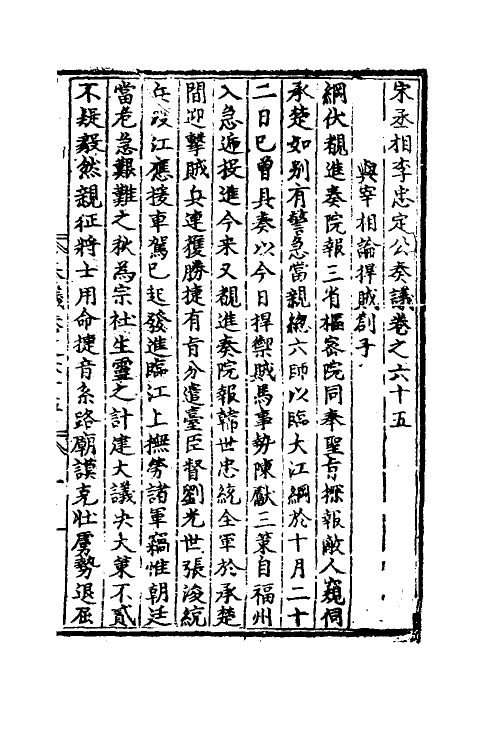 宋丞相李忠定公奏議卷之六十五
與宰相論捍賊劄子
綱伏覩進奏院報三省樞密院同奉聖旨探報敵人窺伺
承楚如別有警急當親總六師以臨大江綱於十月二十
二日已曾具奏以今日捍禦賊馬事勢陳獻三策自福州
入急遞投進今来又覩進奏院報韓世忠統全軍於承楚
間迎擊賊兵連獲勝捷有旨分遣臺臣督劉光世張浚統
兵渡江應接車駕已起發進臨江上撫勞諸軍竊惟朝廷
當危急艱難之秋為宗社生靈之計建大議决大策不貳
不疑毅然親征將士用命捷音系路廟謨克壯虜勢退屈